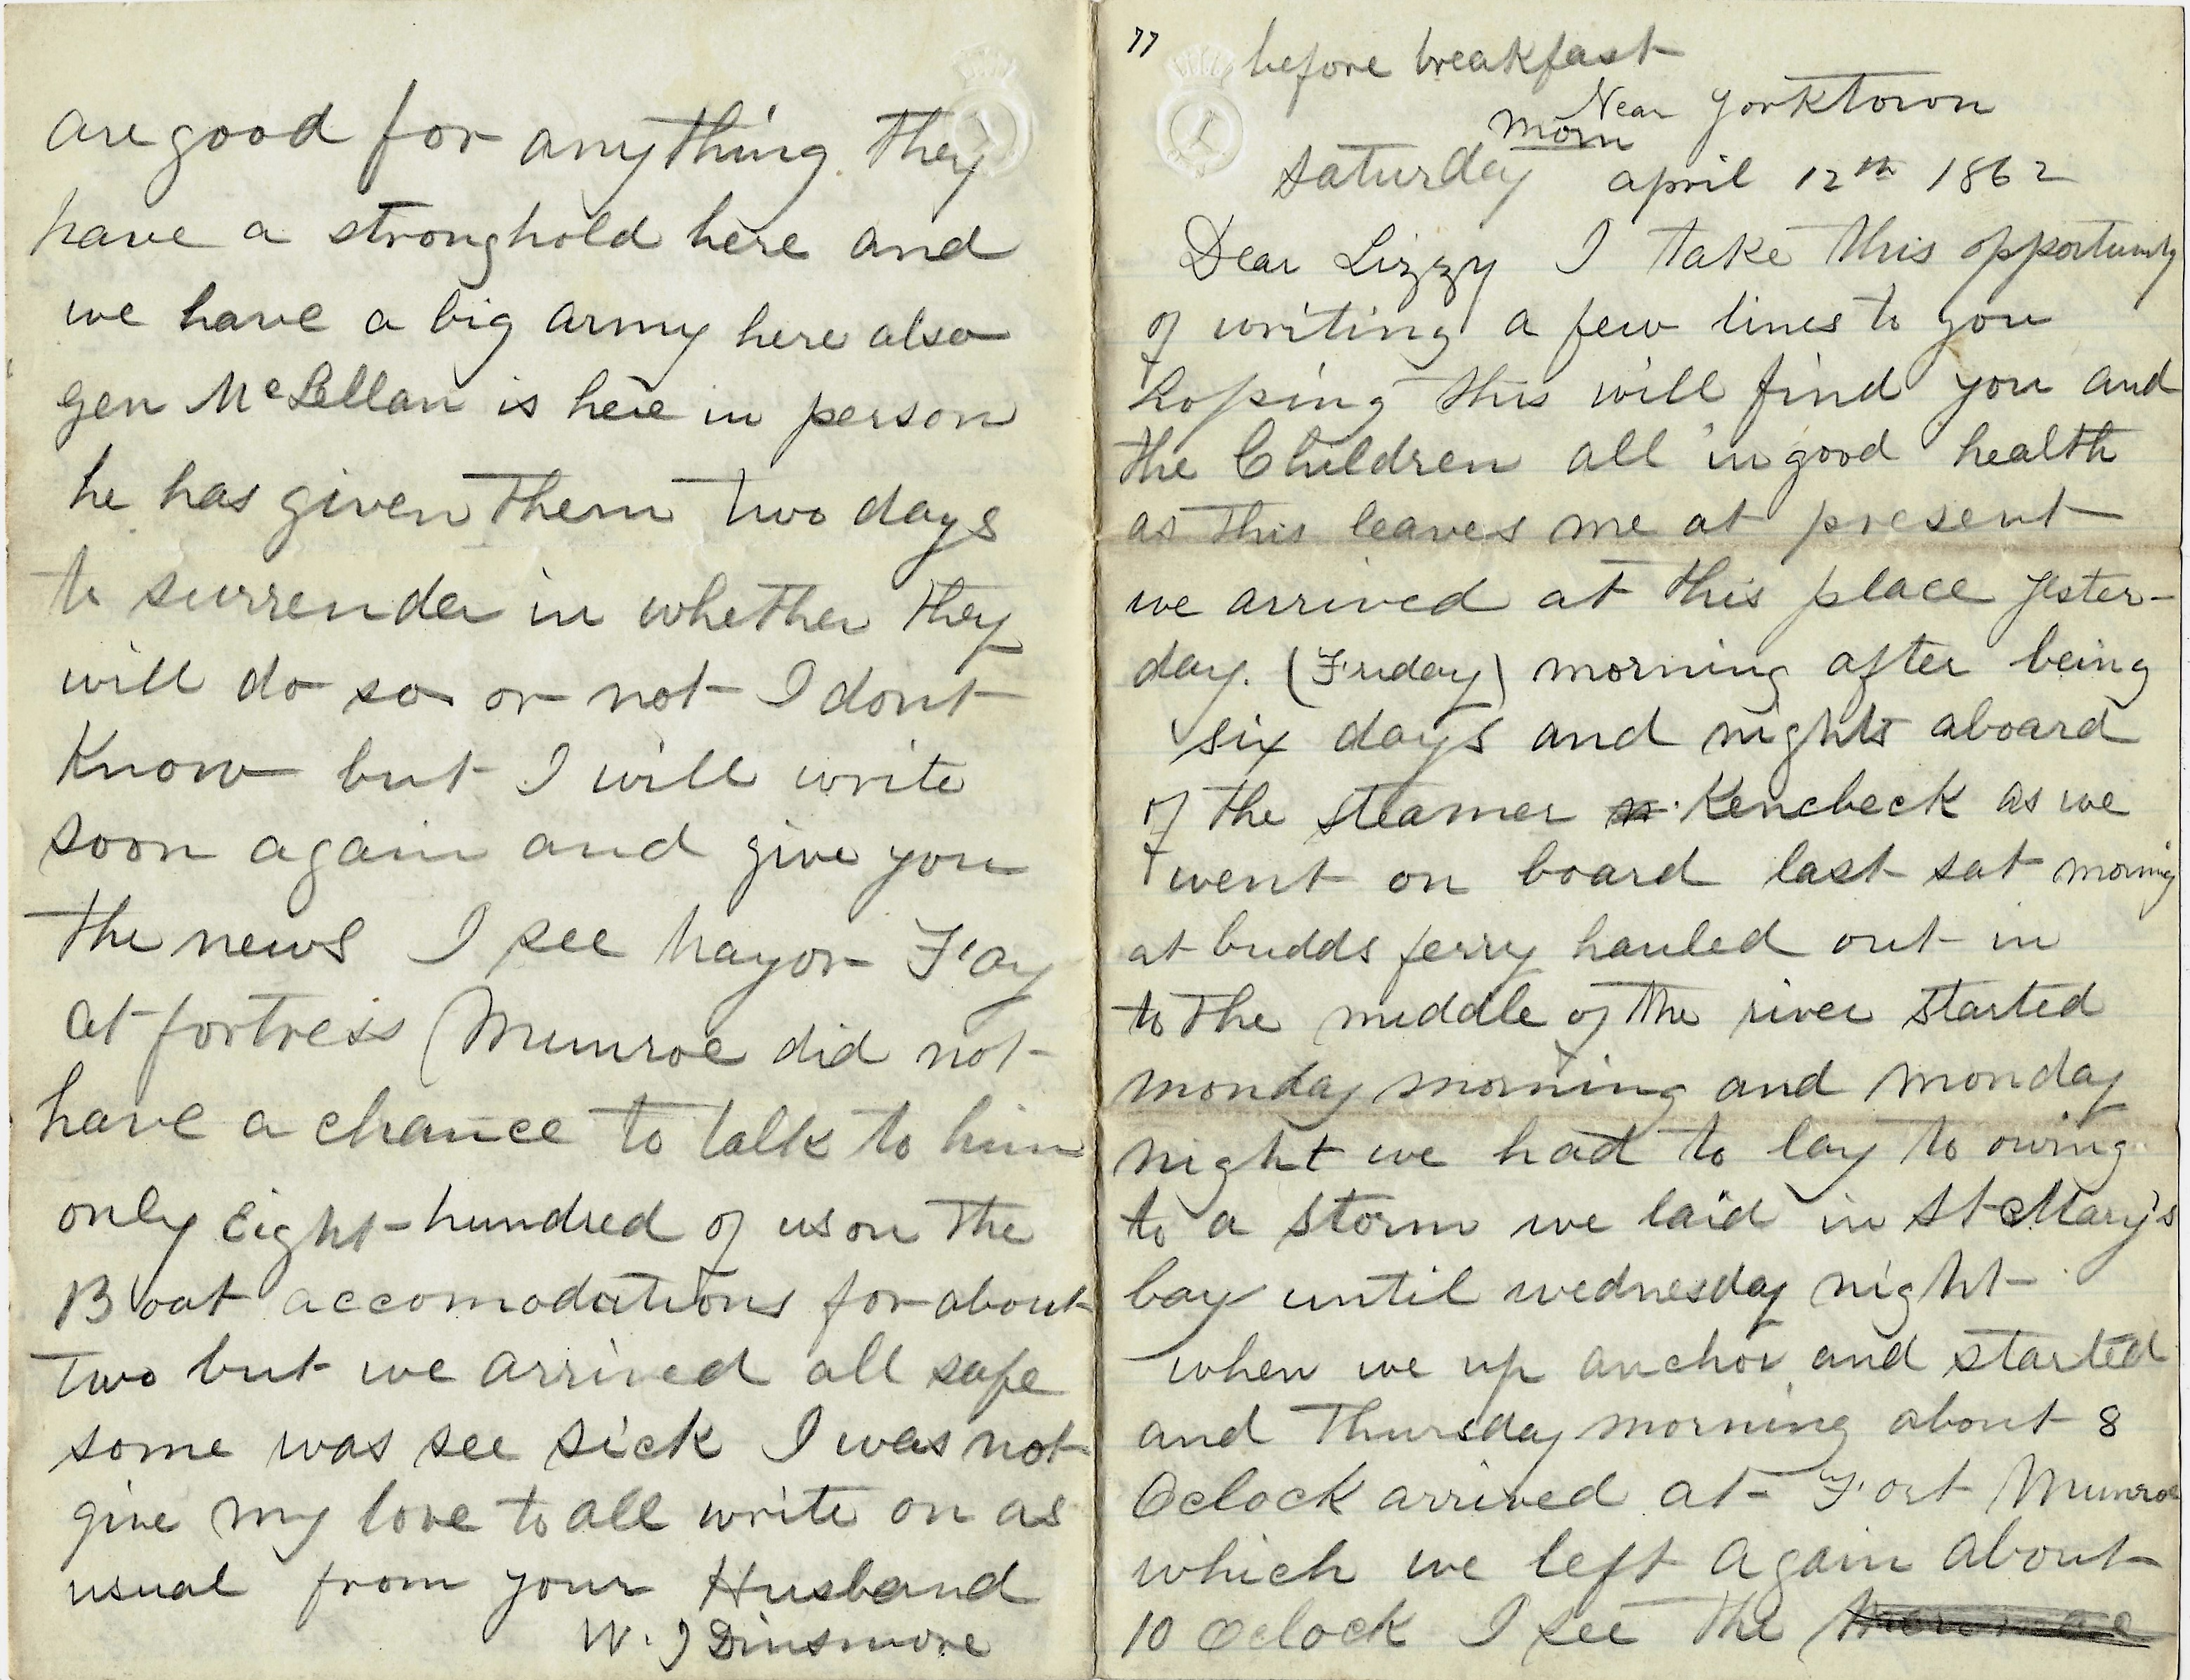 are good for anything. They
have a stronghold here and
we have a big army here also
gen McLellan is here in person
he has given them two days
to surrender in whether they
will do so or not I dont
Know but I will write
soon again and give you
the news I see Mayor Fay
at fortress Munroe did not
have a chance to talk to him
only Eight-hundred of us on the
Boat accomodations for about
two but we arrived all safe
some was see sick I was not
give my love to all write on as
usual from your Husband
W. J Dinsmore
77
before breakfast
Near Yorktown
morn
Saturday april 12th 1862
Dear Lizzy I take this opportunity
of writing a few lines to you
hoping this will find you and
the Children all in good health
as this leaves me at present
we arrived at this place Yester-
day. (Friday) morning after being
six days and nights aboard
of the steamer Kencbeck as we
went on board last sat morning
at budds ferry hauled out in
to the middle of the river started
monday morning and monday
night we had to lay to owing
to a storm we laid in St Mary's
bay until wednesday night
when we up anchor and started
and Thursday morning about 8
Oclock arrived at Fort Munroe
which we left again about
10 Oclock I see the